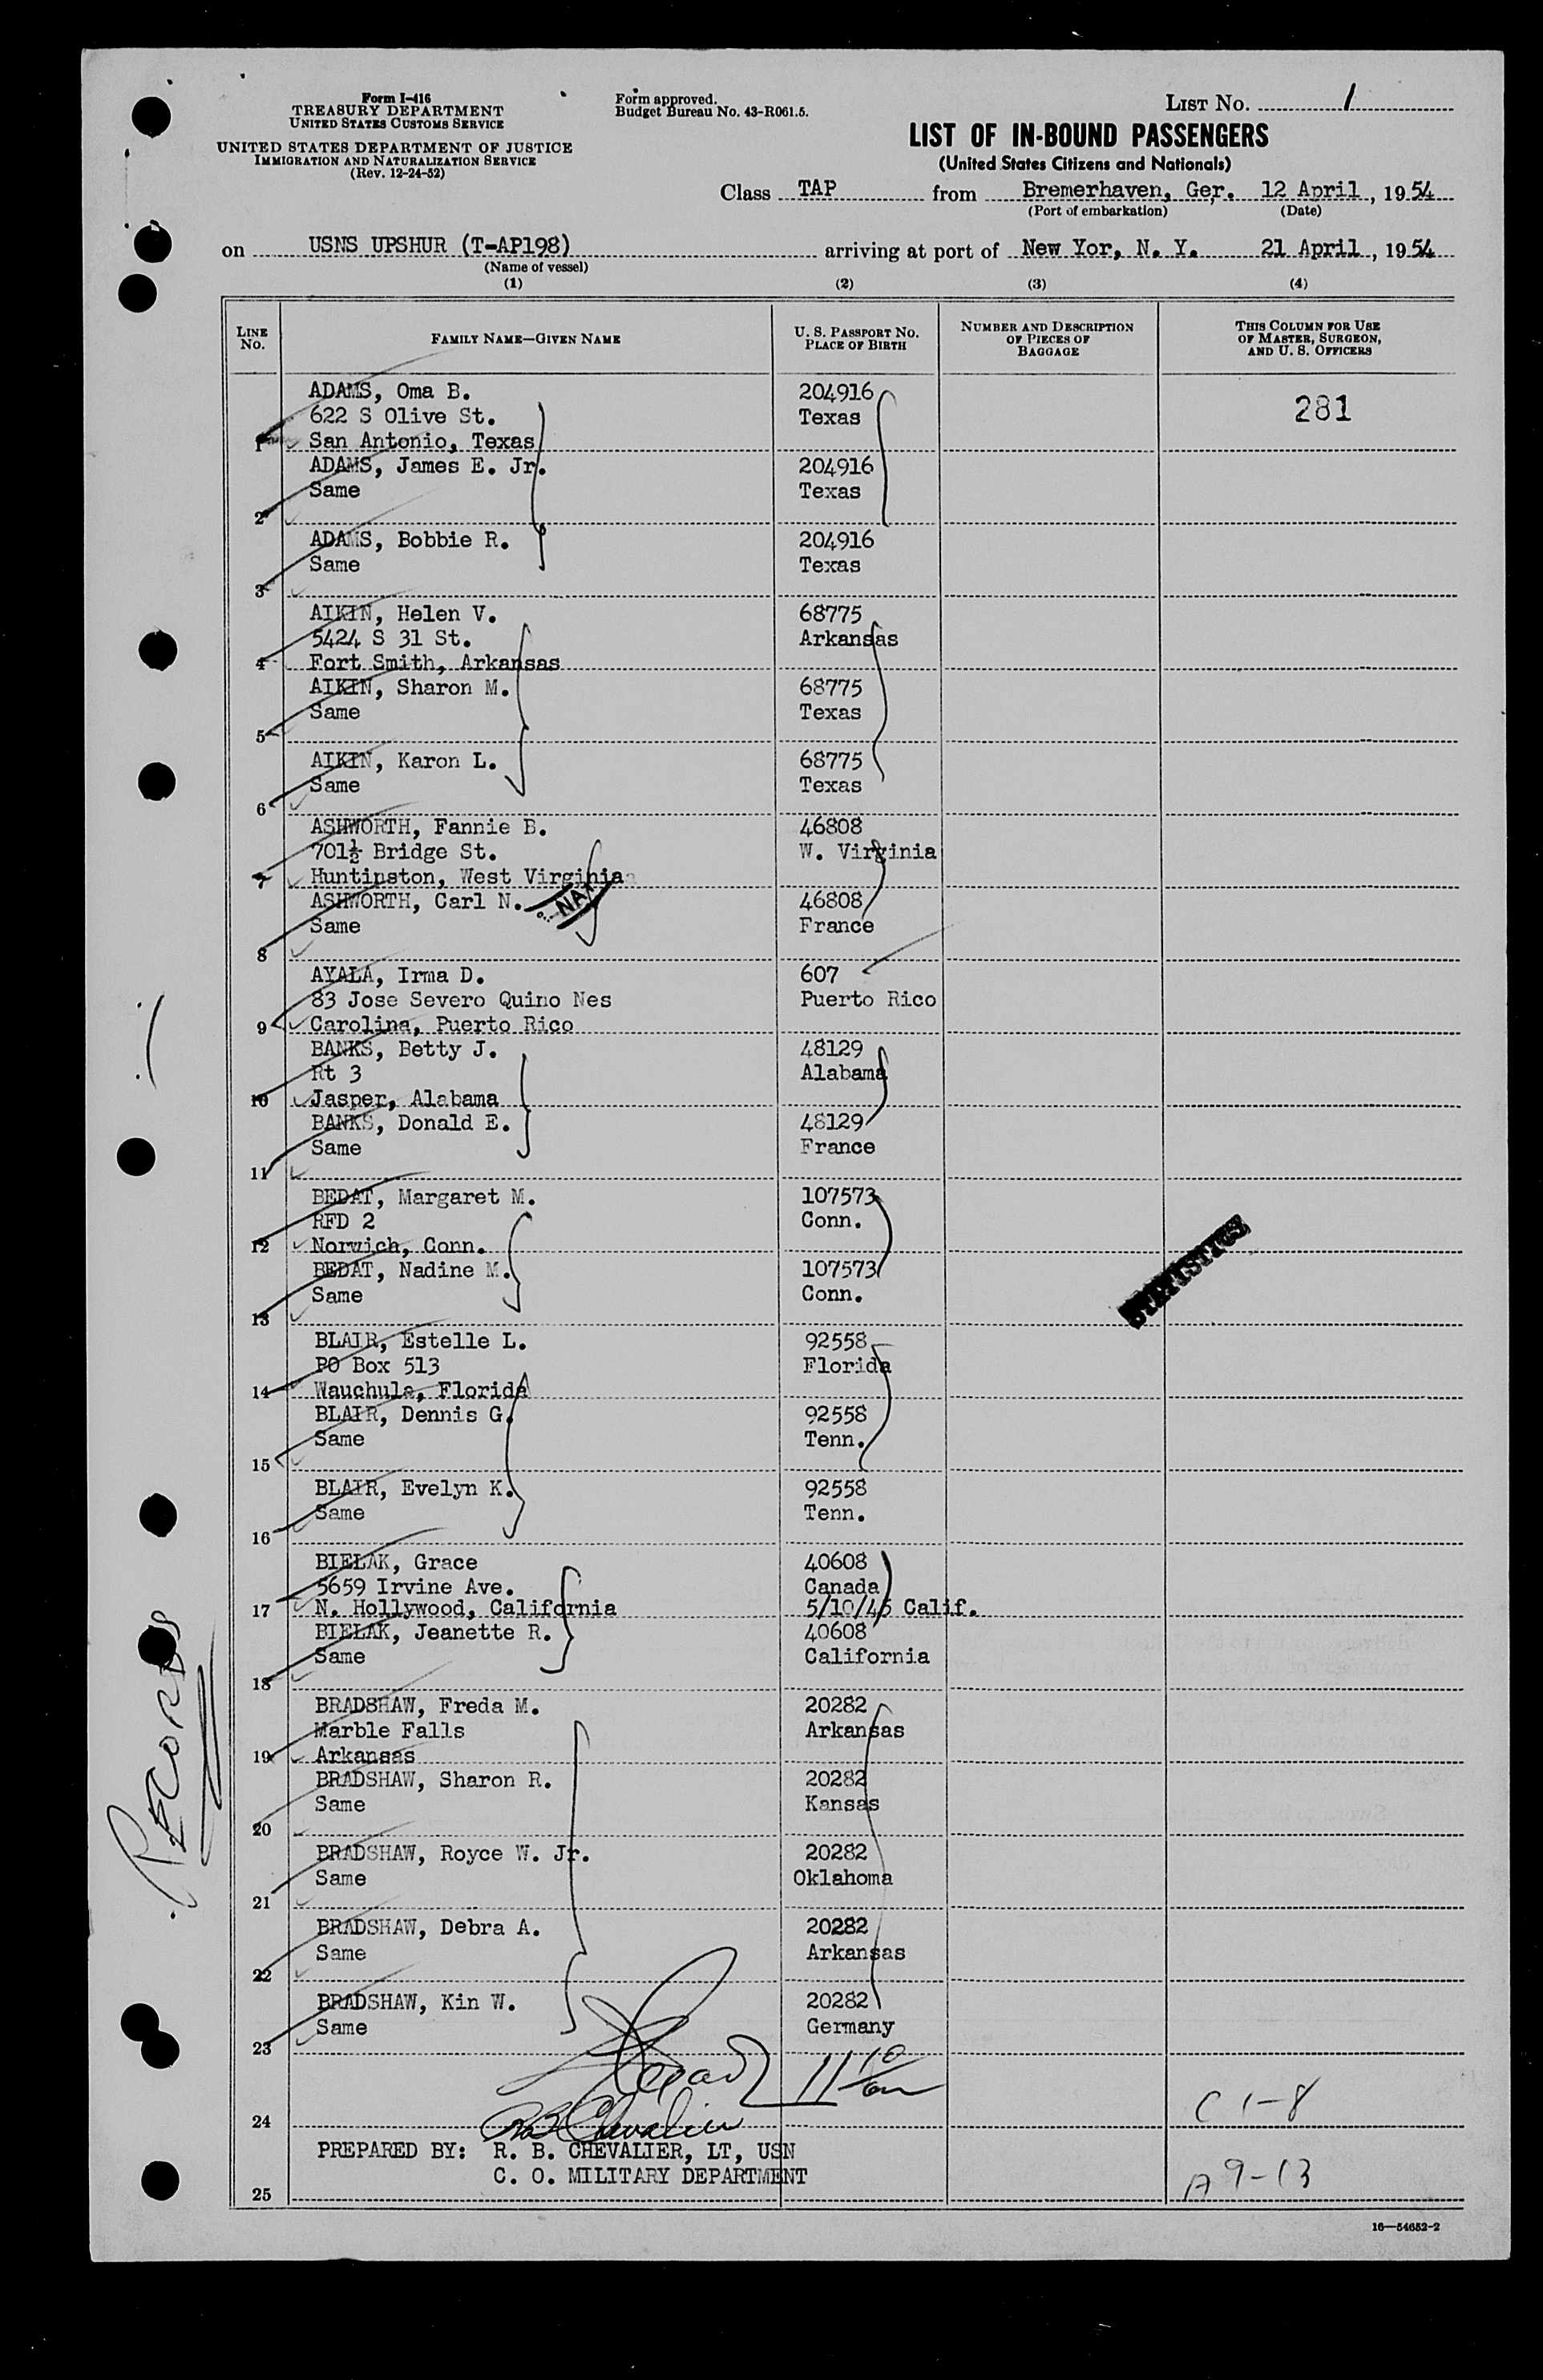 Form I-416
TREASURY DEPARTMENT
UNITED STATES CUSTOMS SERVICE
UNITED STATES DEPARTMENT OF JUSTICE
IMMIGRATION AND NATURALIZATION SERVICE
(Rev. 12-24-52)
Form approved.
Budget Bureau No. 43-R061.5.
LIST No. 1
LIST OF IN-BOUND PASSENGERS
(United States Citizens and Nationals)
Class TAP from Bremerhaven, Ger. 12 April, 1954
(Port of embarkation) (Date)
on USNS UPSHUR (T-AP198) arriving at port of New Yor, N. Y. 21 April, 1954
(Name of vessel)
(1) (2) (3) (4)
LINE NO. FAMILY NAME—GIVEN NAME U. S. PASSPORT NO. PLACE OF BIRTH NUMBER AND DESCRIPTION OF PIECES OF BAGGAGE THIS COLUMN FOR USE OF MASTER, SURGEON, AND U. S. OFFICERS
ADAMS, Oma B. 204916 281
622 S Olive St. Texas
1 San Antonio, Texas
ADAMS, James E. Jr. 204916
Same Texas
2
ADAMS, Bobbie R. 204916
Same Texas
3
AIKIN, Helen V. 68775
5424 S 31 St. Arkansas
4 Fort Smith, Arkansas
AIKIN, Sharon M. 68775
Same Texas
5
AIKIN, Karon L. 68775
Same Texas
6
ASHWORTH, Fannie B. 46808
701½ Bridge St. W. Virginia
7 Huntinston, West Virginia
ASHWORTH, Carl N. 46808
Same France
8
AYALA, Irma D. 607
83 Jose Severo Quino Nes Puerto Rico
9 Carolina, Puerto Rico
BANKS, Betty J. 48129
Rt 3 Alabama
10 Jasper, Alabama
BANKS, Donald E. 48129
Same France
11
BEDAT, Margaret M. 107573
RFD 2 Conn.
12 Norwich, Conn.
BEDAT, Nadine M. 107573
Same Conn.
13
STATISTICS
BLAIR, Estelle L. 92558
PO Box 513 Florida
14 Wauchula, Florida
BLAIR, Dennis G. 92558
Same Tenn.
15
BLAIR, Evelyn K. 92558
Same Tenn.
16
BIELAK, Grace 40608
5659 Irvine Ave. Canada
17 N. Hollywood, California 5/10/45 Calif.
BIELAK, Jeanette R. 40608
Same California
18
BRADSHAW, Freda M. 20282
Marble Falls Arkansas
19 Arkansas
BRADSHAW, Sharon R. 20282
Same Kansas
20
BRADSHAW, Royce W. Jr. 20282
Same Oklahoma
21
BRADSHAW, Debra A. 20282
Same Arkansas
22
BRADSHAW, Kin W. 20282
Same Germany
23
11 10/am
24 C 1-8
RB Chevalier
PREPARED BY: R. B. CHEVALIER, LT, USN
C. O. MILITARY DEPARTMENT
25 A 9-13
16—54652-2
RECORDS